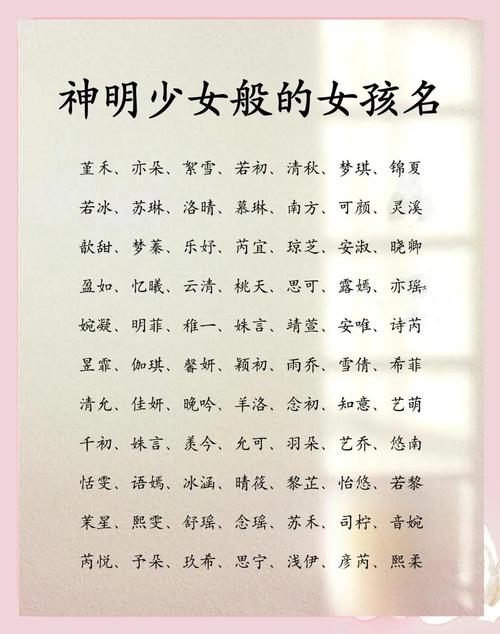 神明少女般的女孩名
堇禾、亦朵、絮雪、若初、清秋、梦琪、锦夏
若冰、苏琳、洛晴、慕琳、南方、可颜、灵溪
歆甜、梦蓁、乐妤、芮宜、琼芝、安淑、晓卿
盈如、忆曦、云清、桃夭、思可、露嫣、亦瑶
婉凝、明菲、稚一、姝言、靖萱、安唯、诗芮
昱霏、伽琪、馨妍、颖初、雨乔、雪倩、希菲
清允、佳妍、晚吟、羊洛、念初、知意、艺萌
千初、姝言、羡今、允可、羽朵、艺乔、悠南
恬雯、语嫣、冰涵、晴筱、黎芷、怡悠、若黎
茉星、熙雯、舒瑶、念瑶、苏禾、司柠、音婉
芮悦、予朵、玖希、思宁、浅伊、彦芮、熙柔